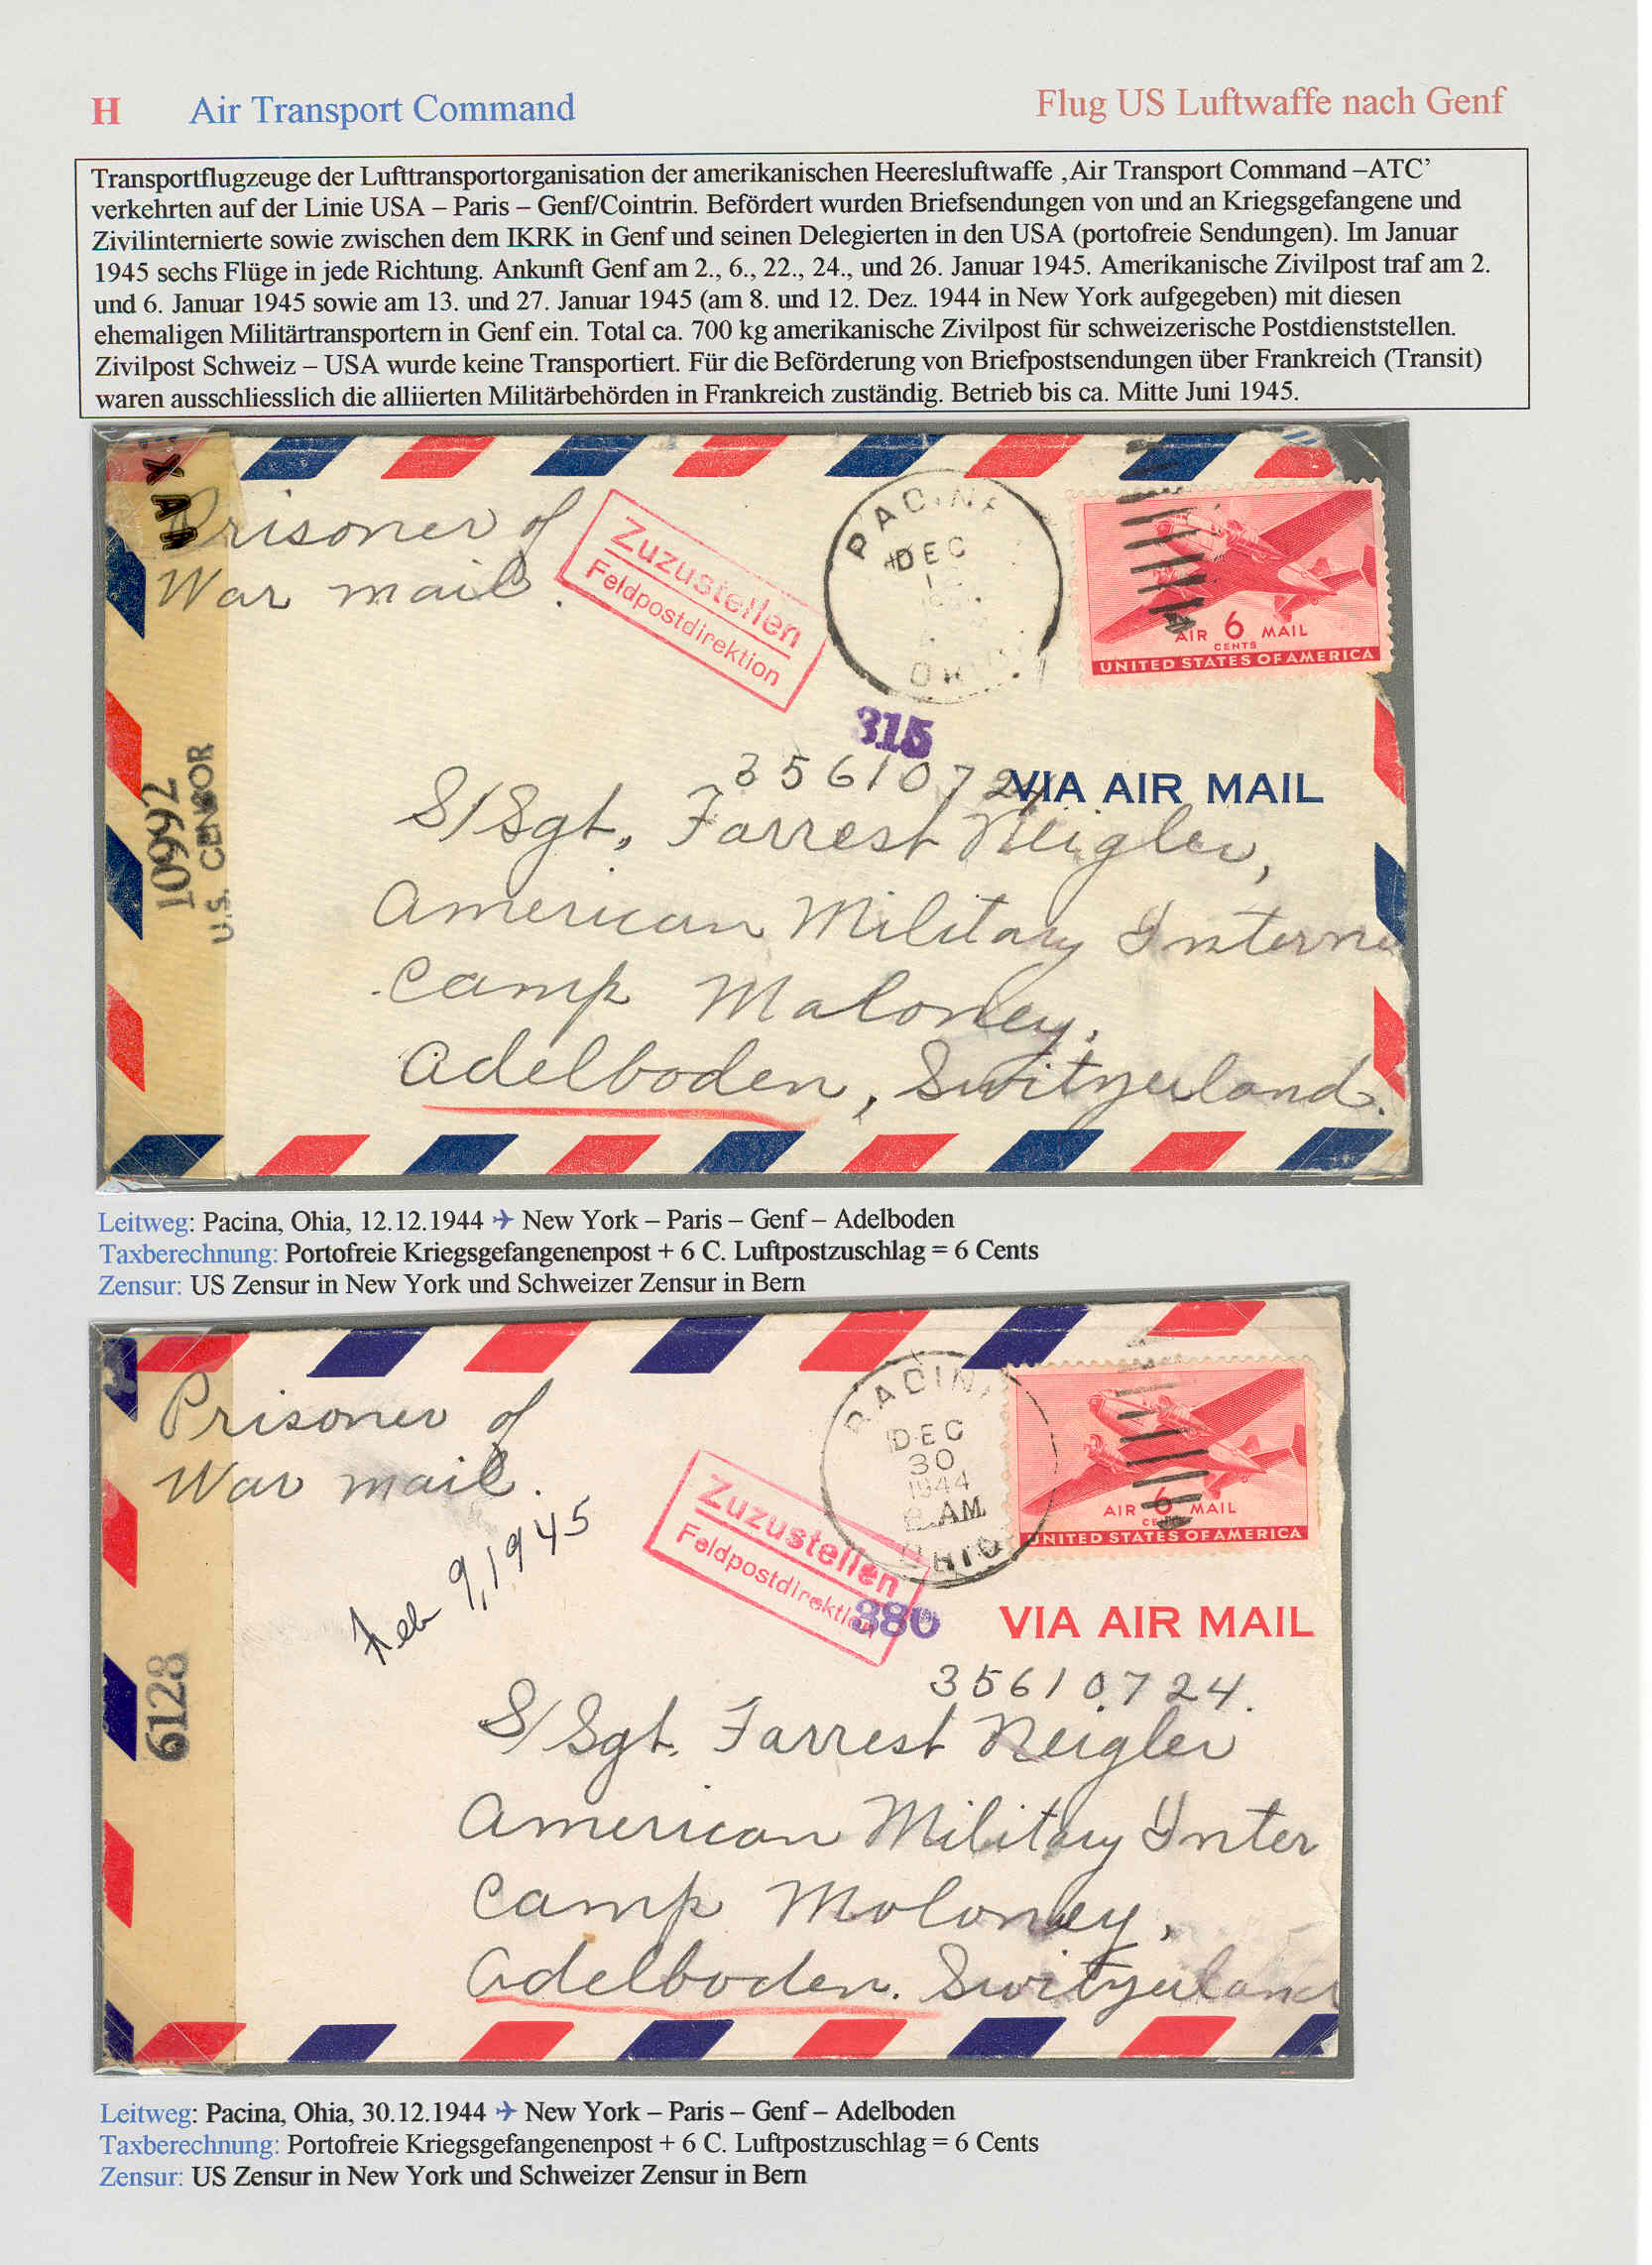 H Air Transport Command Flug US Luftwaffe nach Genf
Transportflugzeuge der Lufttransportorganisation der amerikanischen Heeresluftwaffe ‚Air Transport Command –ATC’
verkehrten auf der Linie USA – Paris – Genf/Cointrin. Befördert wurden Briefsendungen von und an Kriegsgefangene und
Zivilinternierte sowie zwischen dem IKRK in Genf und seinen Delegierten in den USA (portofreie Sendungen). Im Januar
1945 sechs Flüge in jede Richtung. Ankunft Genf am 2., 6., 22., 24., und 26. Januar 1945. Amerikanische Zivilpost traf am 2.
und 6. Januar 1945 sowie am 13. und 27. Januar 1945 (am 8. und 12. Dez. 1944 in New York aufgegeben) mit diesen
ehemaligen Militärtransportern in Genf ein. Total ca. 700 kg amerikanische Zivilpost für schweizerische Postdienststellen.
Zivilpost Schweiz – USA wurde keine Transportiert. Für die Beförderung von Briefpostsendungen über Frankreich (Transit)
waren ausschliesslich die alliierten Militärbehörden in Frankreich zuständig. Betrieb bis ca. Mitte Juni 1945.
Prisoner of
War mail.
Zuzustellen
Feldpostdirektion
DEC
AIR 6 MAIL
CENTS
UNITED STATES OF AMERICA
315
10992
U.S. CENSOR
35610724
VIA AIR MAIL
S/Sgt. Farrest Neigler,
American Military Interne
Camp Maloney,
Adelboden, Switzerland.
Leitweg: Pacina, Ohia, 12.12.1944 ✈ New York – Paris – Genf – Adelboden
Taxberechnung: Portofreie Kriegsgefangenenpost + 6 C. Luftpostzuschlag = 6 Cents
Zensur: US Zensur in New York und Schweizer Zensur in Bern
Prisoner of
War mail.
Feb 9, 1945
Zuzustellen
Feldpostdirektion
DEC
30
1944
AM
OHIO
AIR 6 MAIL
UNITED STATES OF AMERICA
380
6128
VIA AIR MAIL
35610724.
S/Sgt. Farrest Neigler
American Military Inter
Camp Moloney,
Adelboden. Switzerland
Leitweg: Pacina, Ohia, 30.12.1944 ✈ New York – Paris – Genf – Adelboden
Taxberechnung: Portofreie Kriegsgefangenenpost + 6 C. Luftpostzuschlag = 6 Cents
Zensur: US Zensur in New York und Schweizer Zensur in Bern